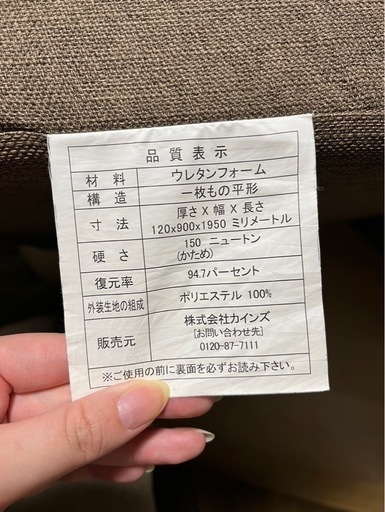 品質表示
材料 ウレタンフォーム
構造 一枚もの平形
寸法 厚さ X 幅 X 長さ
120x900x1950 ミリメートル
硬さ 150 ニュートン
(かため)
復元率 94.7パーセント
外装生地の組成 ポリエステル 100%
販売元 株式会社カインズ
[お問い合わせ先]
0120-87-7111
※ご使用の前に裏面を必ずお読み下さい。